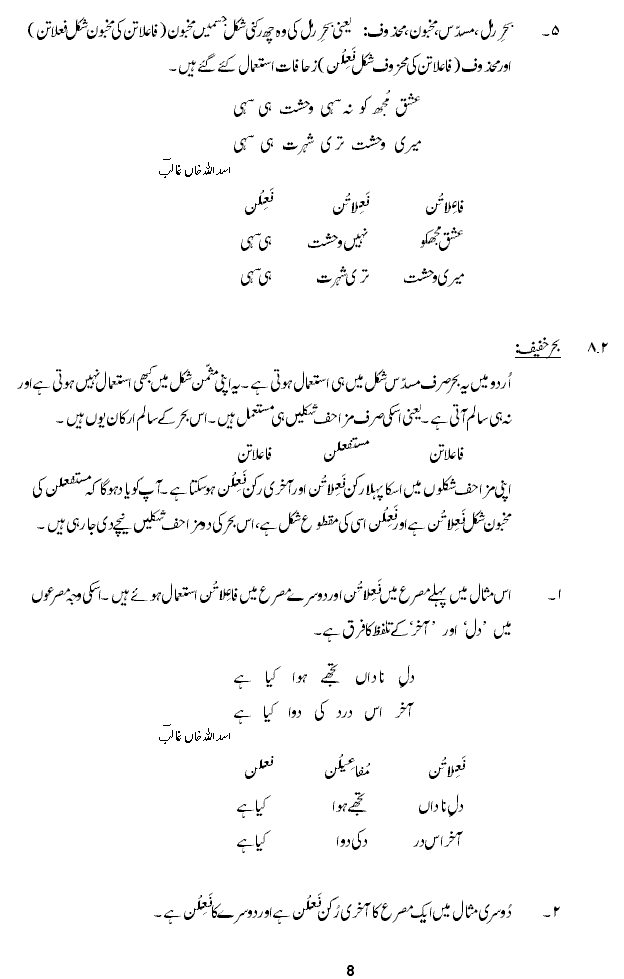 ۵۔ بحرِ رمل، مسدّس، مخبون، محذوف: یعنی بحرِ رمل کی وہ چھ رکنی شکل جسمیں مخبون (فاعلاتن کی مخبون شکل فعلاتن)
اور محذوف (فاعلاتن کی محزوف شکل فَعِلُن) زحافات استعمال کئے گئے ہیں۔
عشق مُجھ کو نہ سہی وحشت ہی سہی
میری وحشت تری شہرت ہی سہی
اسد اللہ خاں غالبؔ
فاعِلاتُن فَعِلاتُن فَعِلُن
عشق مجھکو نہیں وحشت ہی سہی
میری وحشت تری شہرت ہی سہی
۸.۲ بحر خفیف:
اُردو میں یہ بحر صرف مسدّس شکل میں ہی استعمال ہوتی ہے۔ یہ اپنی مثمّن شکل میں کبھی استعمال نہیں ہوتی ہے اور
نہ ہی سالم آتی ہے۔ یعنی اسکی صرف مزاحف شکلیں ہی مستعمل ہیں۔ اس بحر کے سالم ارکان یوں ہیں۔
فاعلاتن مستفعلن فاعلاتن
اپنی مزاحف شکلوں میں اسکا پہلا رکن فَعِلاتُن اور آخری رکن فَعِلُن ہو سکتا ہے۔ آپ کو یاد ہوگا کہ مستفعلن کی
مخبون شکل فَعِلاتُن ہے اور فَعِلُن اسی کی مقطوع شکل ہے، اس بحر کی دو مزاحف شکلیں نیچے دی جا رہی ہیں۔
۱۔ اس مثال میں پہلے مصرع میں فَعِلاتُن اور دوسرے مصرع میں فاعِلاتُن استعمال ہوئے ہیں۔ اسکی وجہ مصرعوں
میں ’دل‘ اور ’آخر‘ کے تلفظ کا فرق ہے۔
دلِ ناداں تجھے ہوا کیا ہے
آخر اس درد کی دوا کیا ہے
اسد اللہ خاں غالبؔ
فَعِلاتُن مُفاعیلُن فعلن
دلِ ناداں تجھے ہوا کیا ہے
آخر اس در د کی دوا کیا ہے
۲۔ دُوسری مثال میں ایک مصرع کا آخری رُکن فَعلُن ہے اور دوسرے کا فَعِلُن ہے۔
8